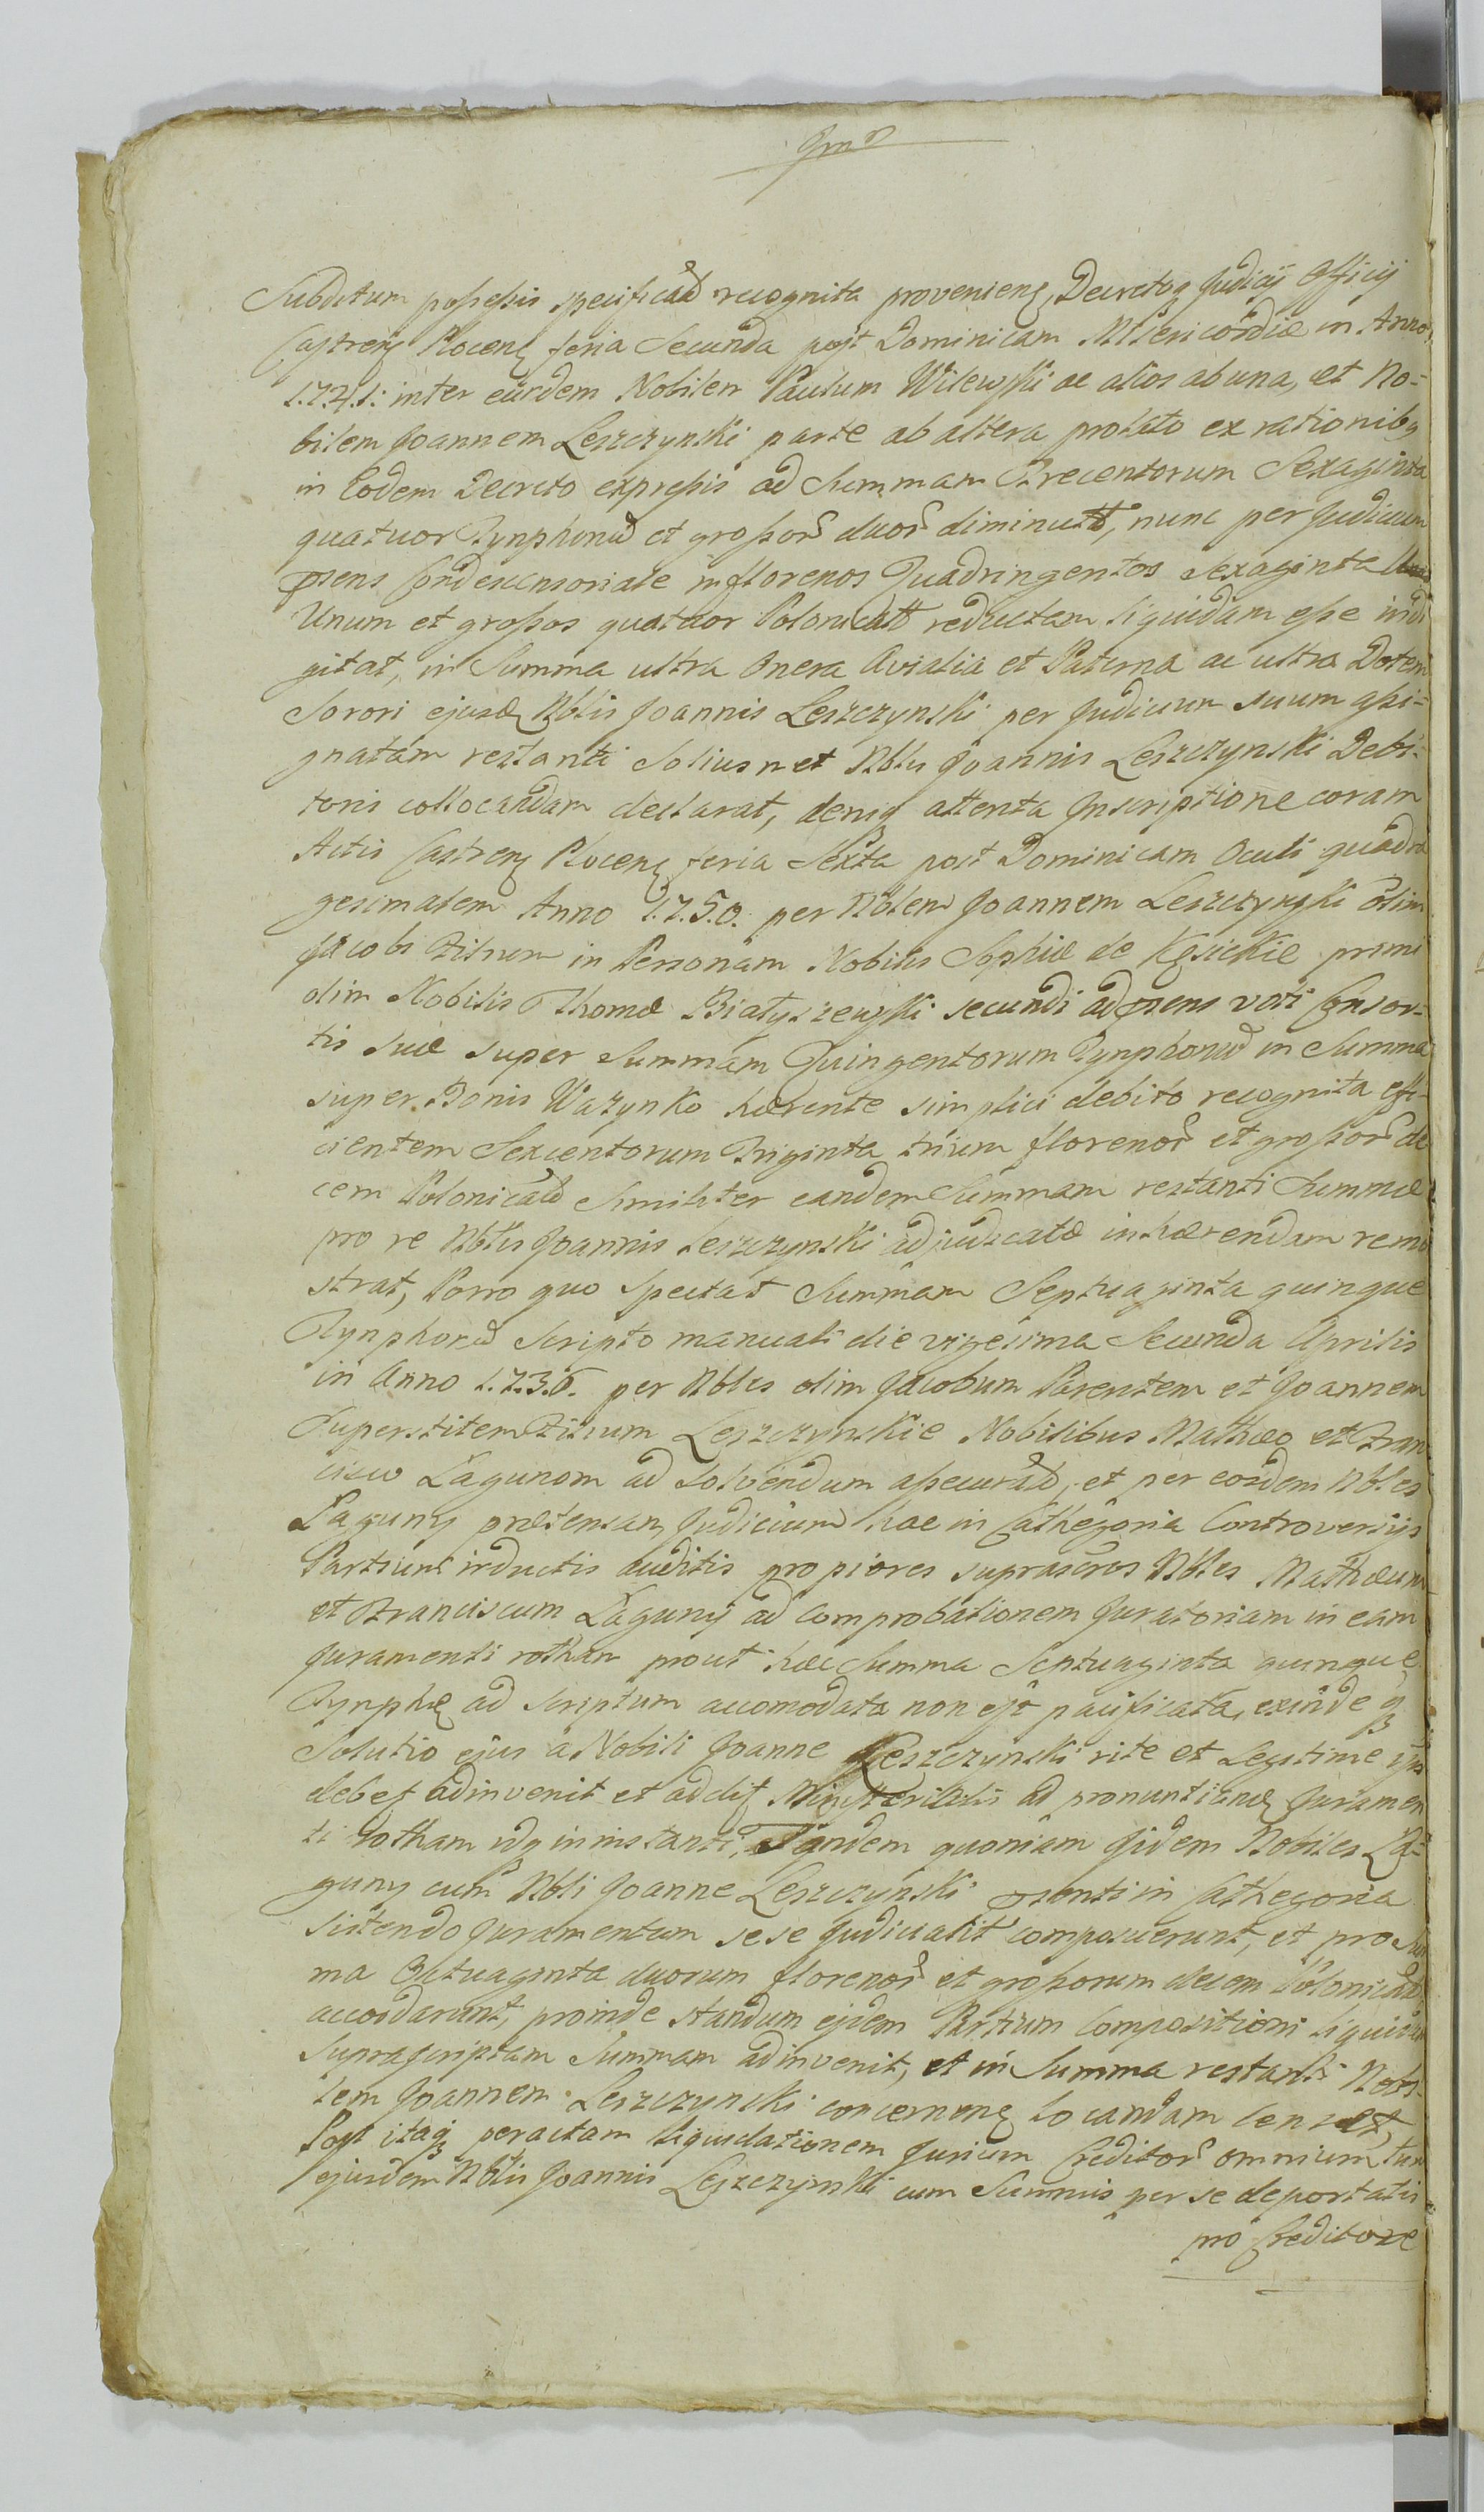 Subditum possessis specificat recognita proveniens, Decretoq Judicij Officij
Castrens Plocens feria Secunda post Dominicam Misericordiæ in Anno
1.7.4.1: inter eundem Nobilem Paulum Wilewski ac alios ab una, et No-
bilem Joannem Leszczynski parte ab altera prolato ex rationibq
in Eodem Decreto expressis ad Summam Trecentorum Sexaginta
quatuor Tynphonũ et grossorũ duorũ diminutã, nunc per Judicium
prsens Condescensoriale in florenos Quadringentos Sexaginta
Unum et grossos quatuor Polonicales reductam liquidam esse indi
gitat, in Summa ultra Onera Avialia et Paterna ac ultra Dotem
Sorori ejusd Nblis Joannis Leszczynski per Judicium suum assi-
gnatam restanti Soliusmet Nblis Joannis Leszczynski Debi-
toris collocandam declarat, deniq attenta Inscriptione coram
Actis Castrens Plocens feria Sexta post Dominicam Oculi quadra
gesimalem Anno 1.7.5.0. per Nblem Joannem Leszczynski olim
Jacobi Filium in Personam Nobilis Sophiæ de Kęsickie primi
olim Nobilis Thomæ Białyszewski secundi ad prsens voti Consor-
tis suæ super Summam Quingentorum Tynphonũ in Summa
super Bonis Wazynko hærente simplici debito recognita effi-
cientem Sexcentorum Triginta trium florenorũ et grossorũ de
cem Polonicaliũ Similiter eandem Summam restanti Summæ
pro re Nblis Joannis Leszczynski adjudicatæ inhærendam remon
strat, Porro quo spectat Summam Septuaginta quinque
Tynphonũ Scripto manuali die vigesima Secunda Aprilis
in Anno 1.7.3.6. per Nbles olim Jacobum Parentem et Joannem
Superstitem Filium Leszczynskie Nobilibus Mathæo et Fran
cisco Lagunom ad solvendum assecurat, et per eosdem Nbles
Laguny prætensam Judicium hac in Cathegoria Controversijs
Partium inductis auditis propiores suprascros Nbles Mathæum
et Franciscum Laguny ad comprobationem Juratoriam in eam
Juramenti rotham prout hæc Summa Septuaginta quinque
Tynph ad scriptum accomodata non est pacificata, exinde q
Solutio ejus a Nobili Joanne Leszczynski rite et Legitime ipsis
debet adinvenit et addit Ministerialis ad pronuntiand Juramen
ti rotham idq in instanti, Tandem quoniam Jidem Nobiles La-
guny cum Nbli Joanne Leszczynski prsenti in Cathegoria
sistendo Juramentum sese Judicialit composuerunt, et pro Sum
ma Octuaginta duorum florenorũ et grossorum decem Polonicaliũ
accordarunt, proinde standum ejdem Partium Compositioni liquidam
Suprascriptam Summam adinvenit, et in Summa restanti Nobi-
lem Joannem Leszczynski concernens locandam censet,
Post itaq peractam liquidationem Jurium Creditorũ omnium, tum
ejusdem Nblis Joannis Leszczynski cum Summis per se deportatis
pro Creditore